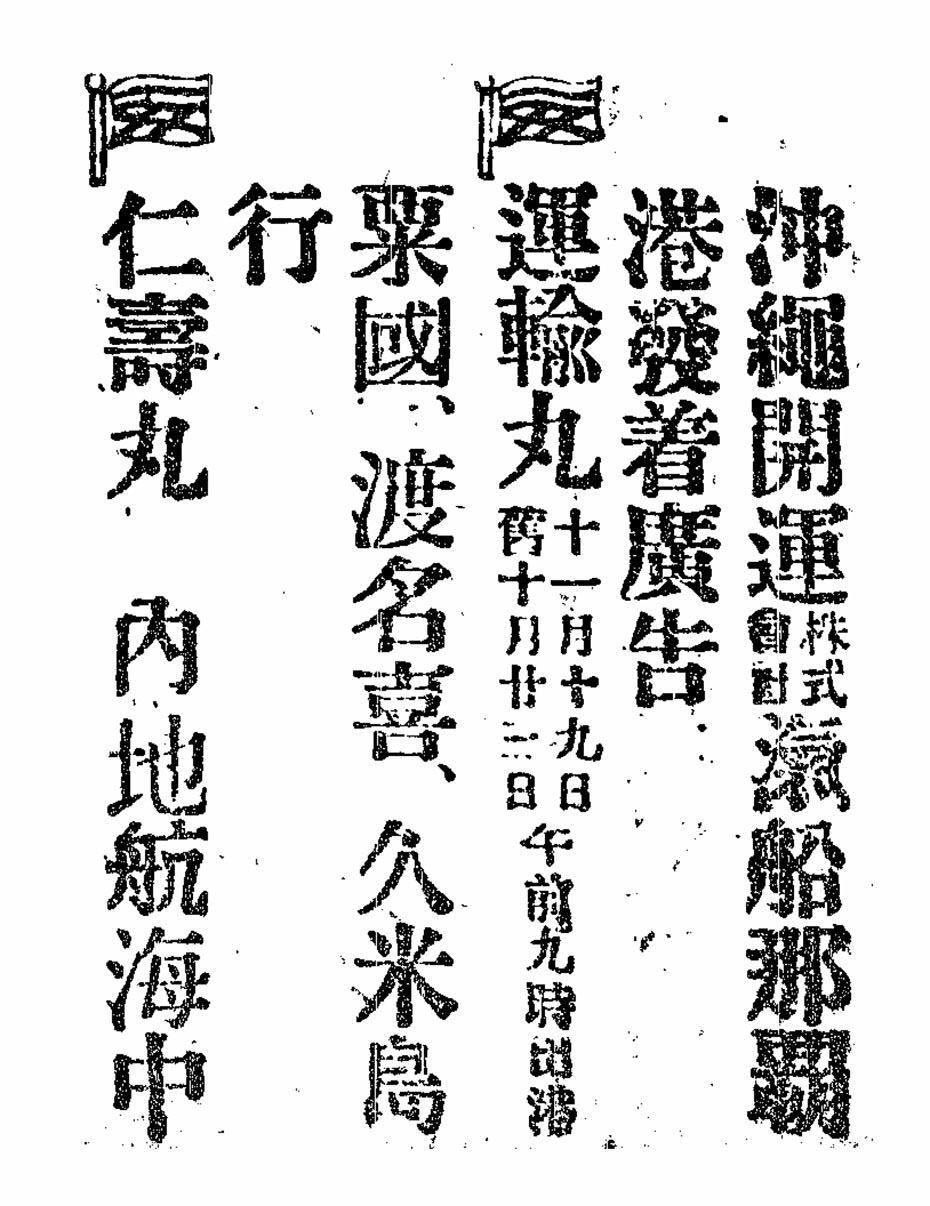 沖繩開運株式會社滊船那覇
港發着廣告
運輸丸十一月十九日舊十月廿二日午前九時出港
粟國、渡名喜、久米島
行
仁壽丸 內地航海中